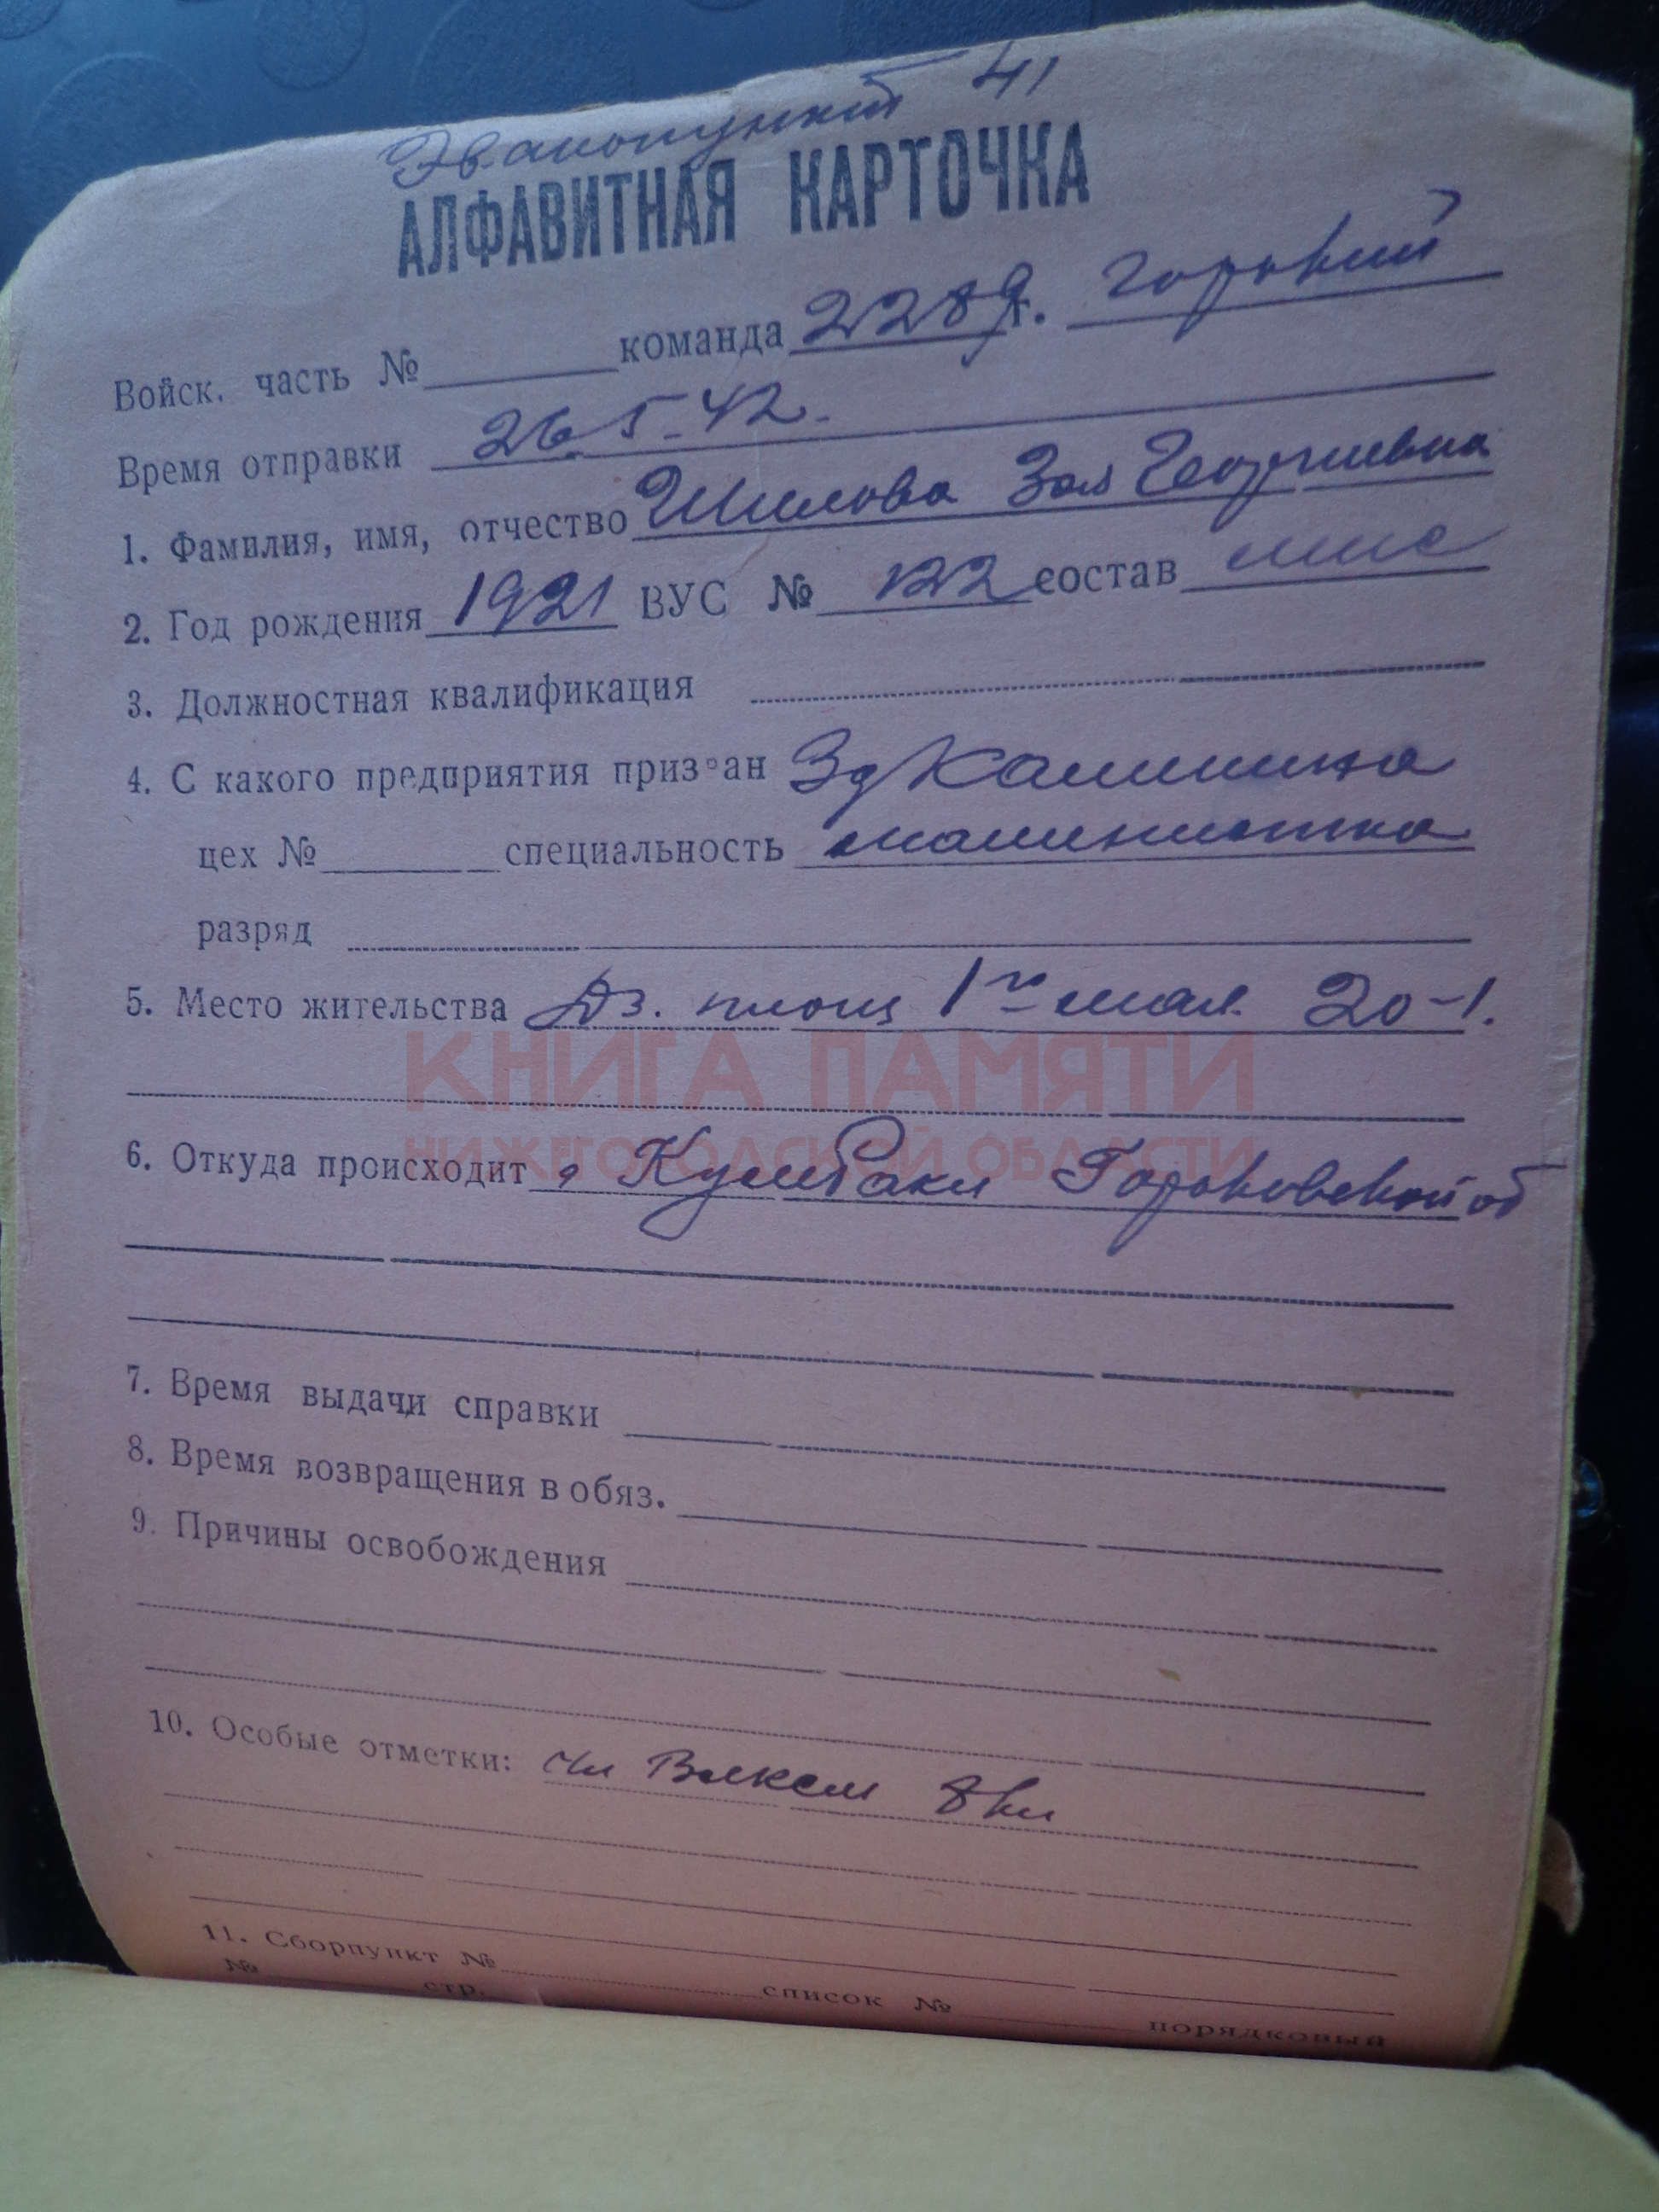 Эвакопункт 41
АЛФАВИТНАЯ КАРТОЧКА
Войск. часть № команда 2289 г. Горький
Время отправки 26.5-42.
1. Фамилия, имя, отчество Шилова Зоя Георгиевна
2. Год рождения 1921 ВУС № 122 состав
3. Должностная квалификация
4. С какого предприятия призван Зд Калинина
цех № специальность машинистка
разряд
5. Место жительства Дз. площ 1го мая 20-1.
КНИГА ПАМЯТИ
НИЖЕГОРОДСКОЙ ОБЛАСТИ
6. Откуда происходит Кулебаки Горьковской об
7. Время выдачи справки
8. Время возвращения в обяз.
9. Причины освобождения
10. Особые отметки: чл Влксм 8 кл
11. Сборпункт № список № порядковый
№ стр.